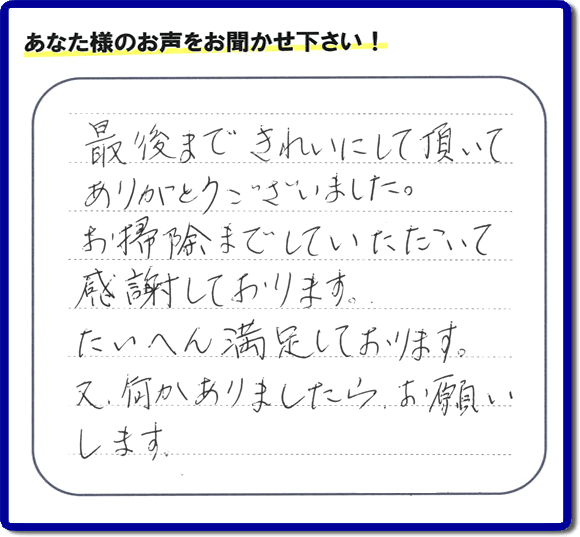 あなた様のお声をお聞かせ下さい！
最後まできれいにして頂いて
ありがとうございました。
お掃除までしていただいて
感謝しております。
たいへん満足しております。
又、何かありましたら、お願い
します。